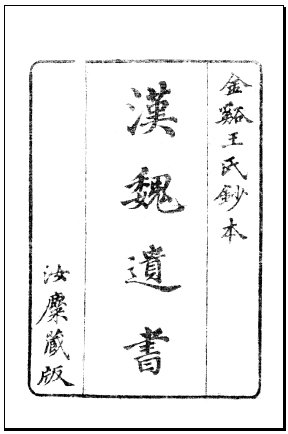 金谿王氏鈔本
漢魏遺書
汝麋藏版